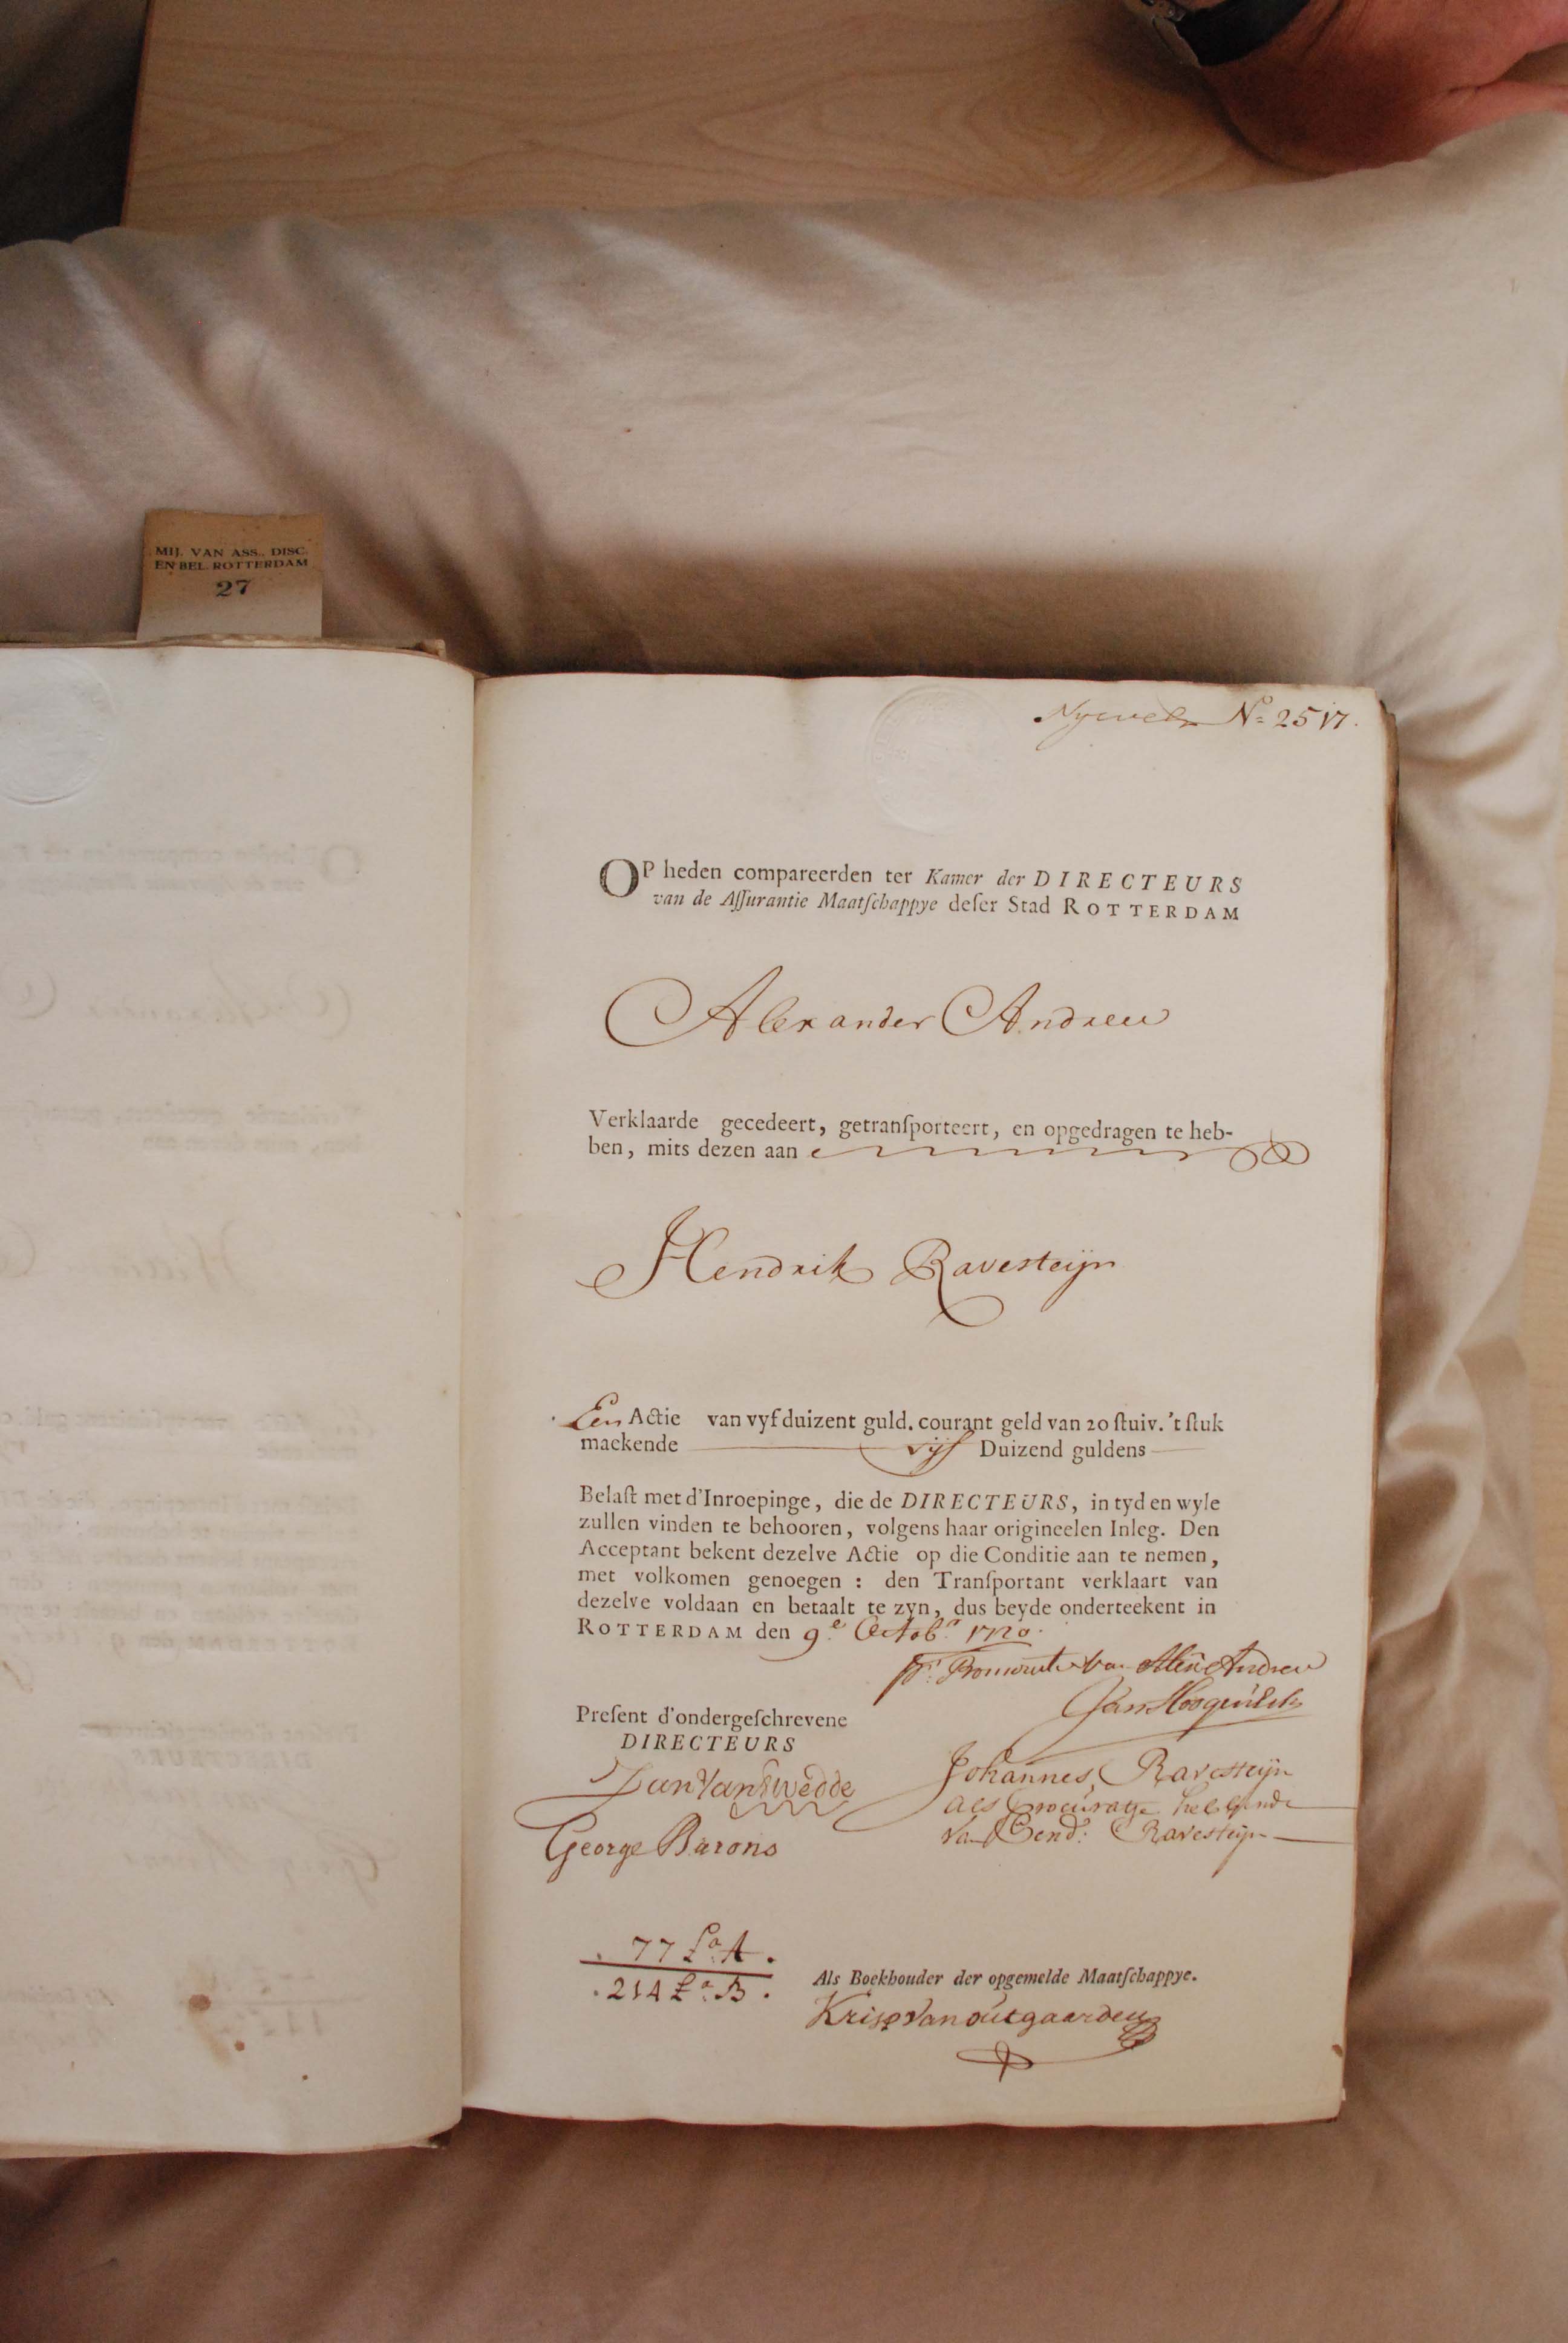 MIJ. VAN ASS., DISC.
EN BEL. ROTTERDAM
27
No 2517.
OP heden compareerden ter Kamer der DIRECTEURS
van de Aſſurantie Maatſchappye deſer Stad ROTTERDAM
Alexander Andrew
Verklaarde gecedeert, getranſporteert, en opgedragen te heb-
ben, mits dezen aan
Hendrik Ravesteijn
Een Actie van vyf duizent guld. courant geld van 20 ſtuiv. 't ſtuk
mackende vijf Duizend guldens
Belaſt met d'Inroepinge, die de DIRECTEURS, in tyd en wyle
zullen vinden te behooren, volgens haar origineelen Inleg. Den
Acceptant bekent dezelve Actie op die Conditie aan te nemen,
met volkomen genoegen : den Tranſportant verklaart van
dezelve voldaan en betaalt te zyn, dus beyde onderteekent in
ROTTERDAM den 9e Octobr 1720.
van Alex Andrew
Preſent d'ondergeſchrevene
DIRECTEURS
Jan Van Swedde
George Barons
Johannes Ravesteijn
als procuratie hebbende
van Hend: Ravesteijn
77 La A.
214 La B.
Als Boekhouder der opgemelde Maatſchappye.
Krisp Van outgaarden